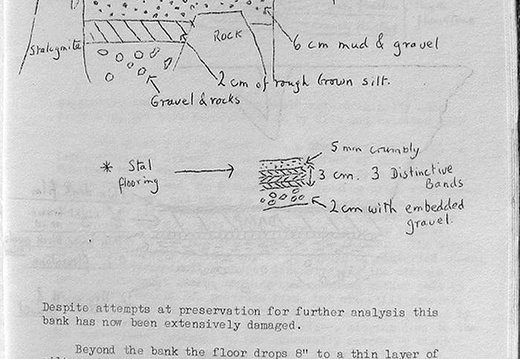 ROCK
6 cm mud & gravel
Stalagmite
2 cm of rough brown silt.
Gravel & rocks
5 mm crumbly
* Stal flooring
3 cm. 3 Distinctive Bands
2 cm with embedded gravel.
Despite attempts at preservation for further analysis this
bank has now been extensively damaged.
Beyond the bank the floor drops 8" to a thin layer of